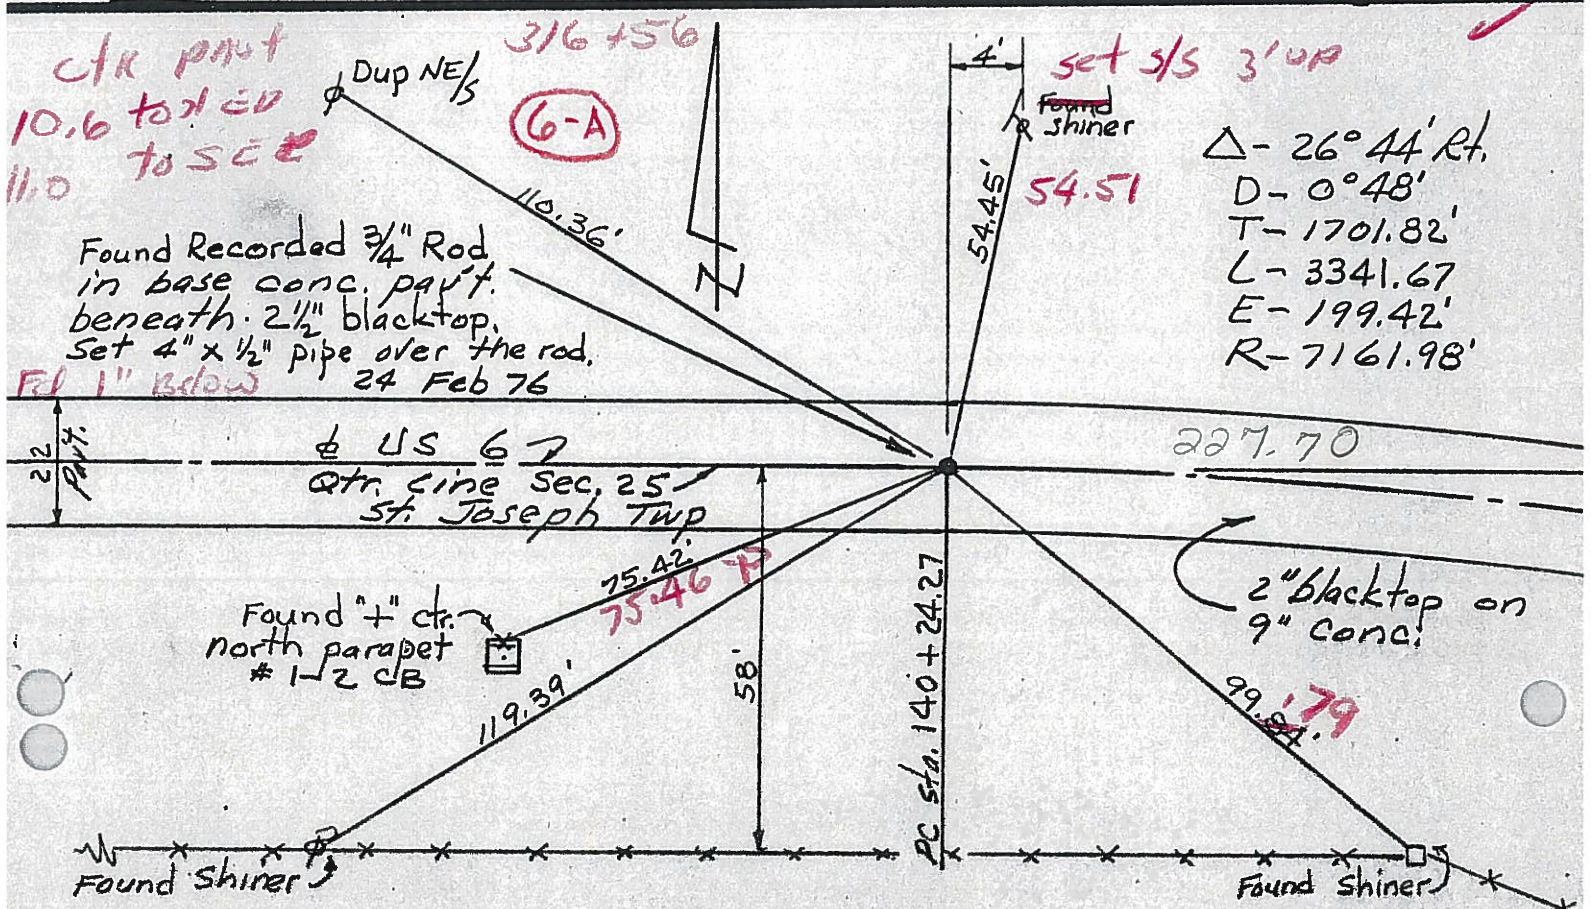 316+56
ctr pavt
10.6 to
11.0 to SCE
6-A
Dup NE/S
110.36'
4'
set s/s 3' up
Found
shiner
54.45'
54.51
Δ- 26°44' Rt.
D- 0°48'
T- 1701.82'
L- 3341.67
E- 199.42'
R- 7161.98'
Found Recorded 3/4" Rod
in base conc. pav't.
beneath 2 1/2" blacktop.
Set 4" x 1/2" pipe over the rod.
24 Feb 76
Fd 1" Below
N
22
Pav't.
℄ US 6
Qtr. Line Sec. 25
St. Joseph Twp
227.70
75.42'
75.46
Found "+" ctr.
north parapet
# 1-2 CB
119.39'
58'
PC sta. 140+24.27
2" blacktop on
9" conc.
99.84'
.79
Found Shiner
Found Shiner